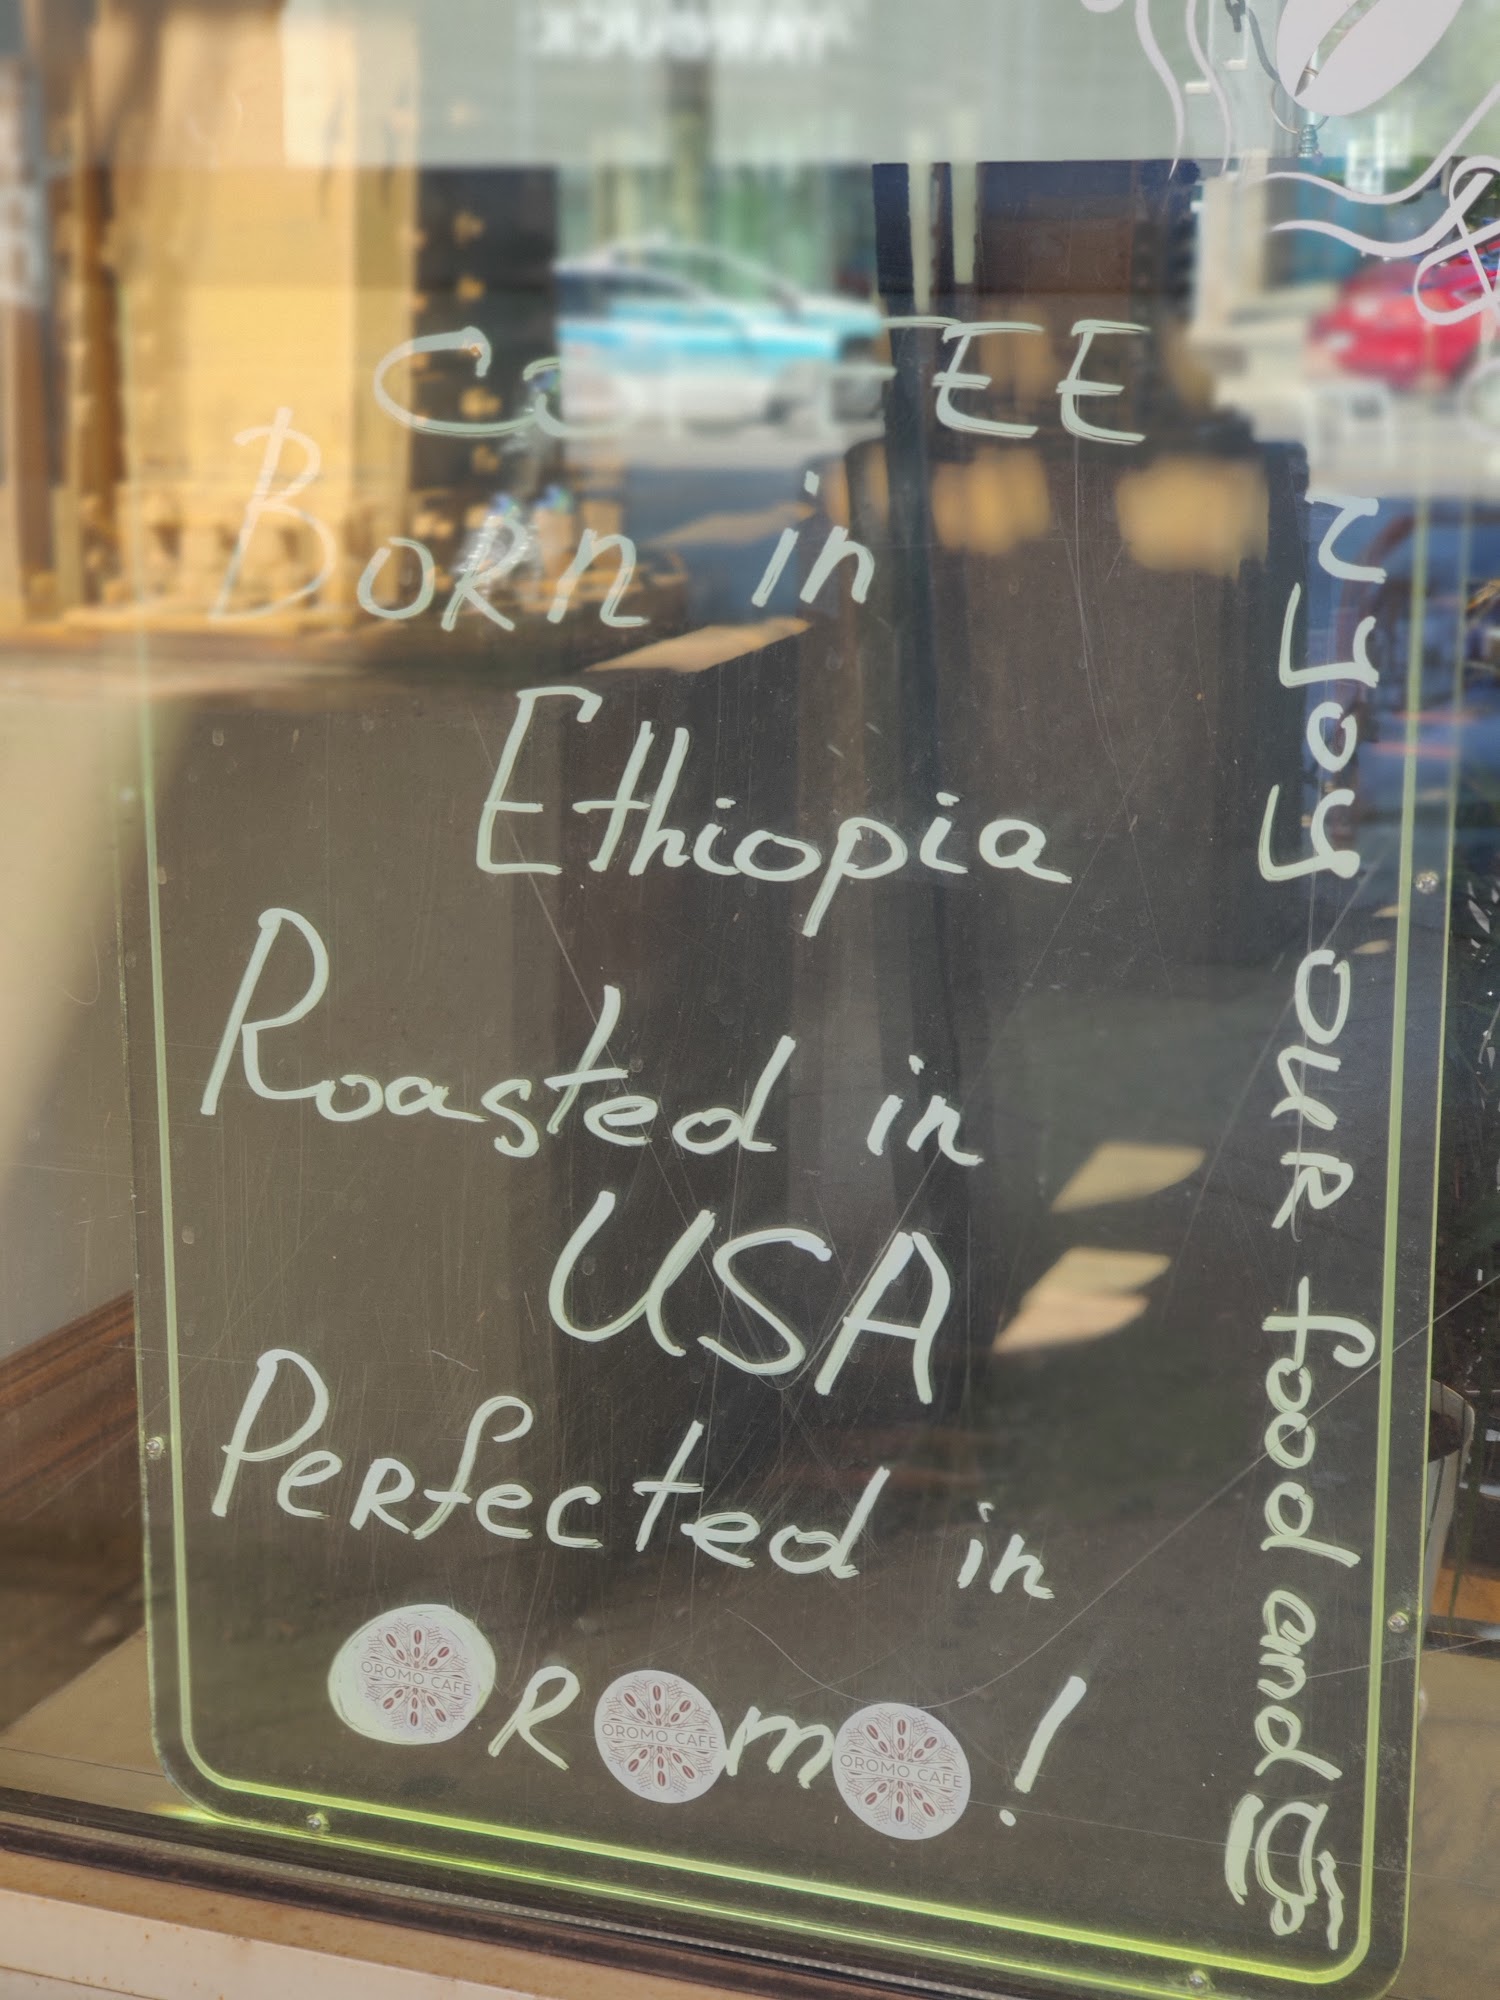 COFFEE
Born in
Ethiopia
Roasted in
USA
Perfected in
OROMO!
OROMO CAFE
OROMO CAFE
OROMO CAFE
our food and